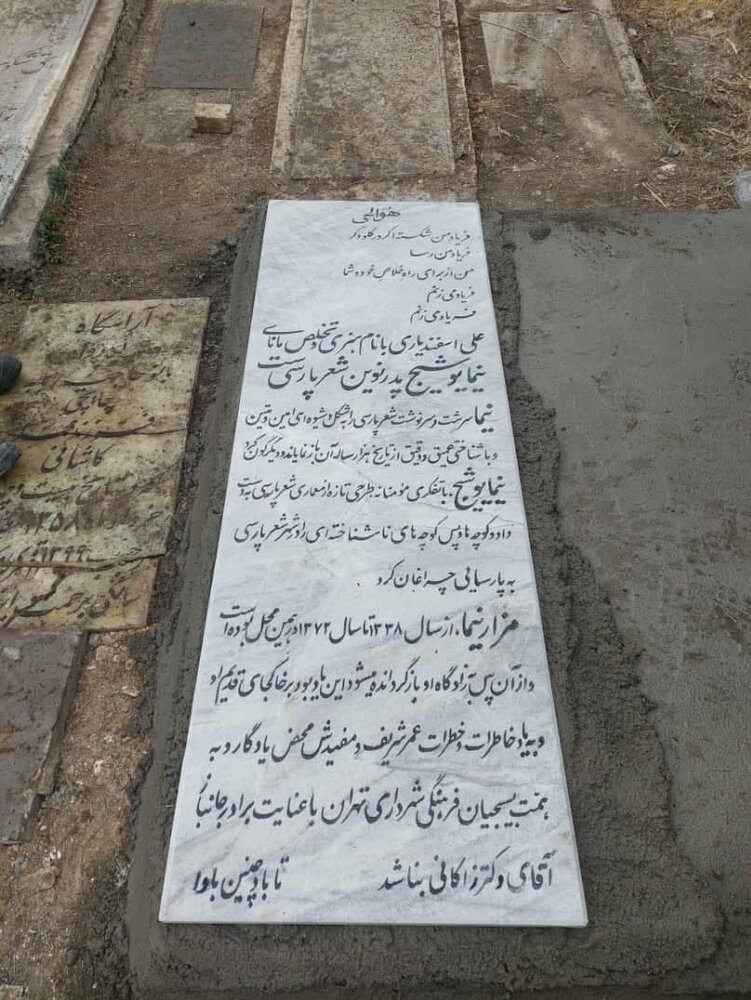 هوالحی
فریاد من شکسته اگر در گلو وگر
فریاد من رسا
من از برای راه خلاص خود و شما
فریاد می زنم
فریاد می زنم
علی اسفندیاری با نام هنری و تخلص مانای
نیما یوشیج پدر نوین شعر پارسی است
نیما سرشت و سرنوشت شعر پارسی را به شکل و شیوه ای امین و متین
و با شناختی عمیق و دقیق از تاریخ هزار ساله آن باز نمایاند و دیگرگون کرد
نیما یوشیج، با تفکری مؤمنانه طرحی تازه از معماری شعر پارسی به دست
داد و کوچه ها و پس کوچه های ناشناخته ای را در شهر شعر پارسی
به پارسایی چراغان کرد
مزار نیما، از سال ۱۳۳۸ تا سال ۱۳۷۲ در همین محل بوده است
و از آن پس به زادگاه او بازگردانده میشود این یادبود بر خاکجای قدیم او
و به یاد خاطرات و خطرات عمر شریف و مفیدش محض یادگار و به
همت بسیجیان فرهنگی شهرداری تهران با عنایت برادر جانباز
آقای دکتر زاکانی بنا شد تا باد چنین بادا
آرامگاه
چایچی
فرزند
کاشانی